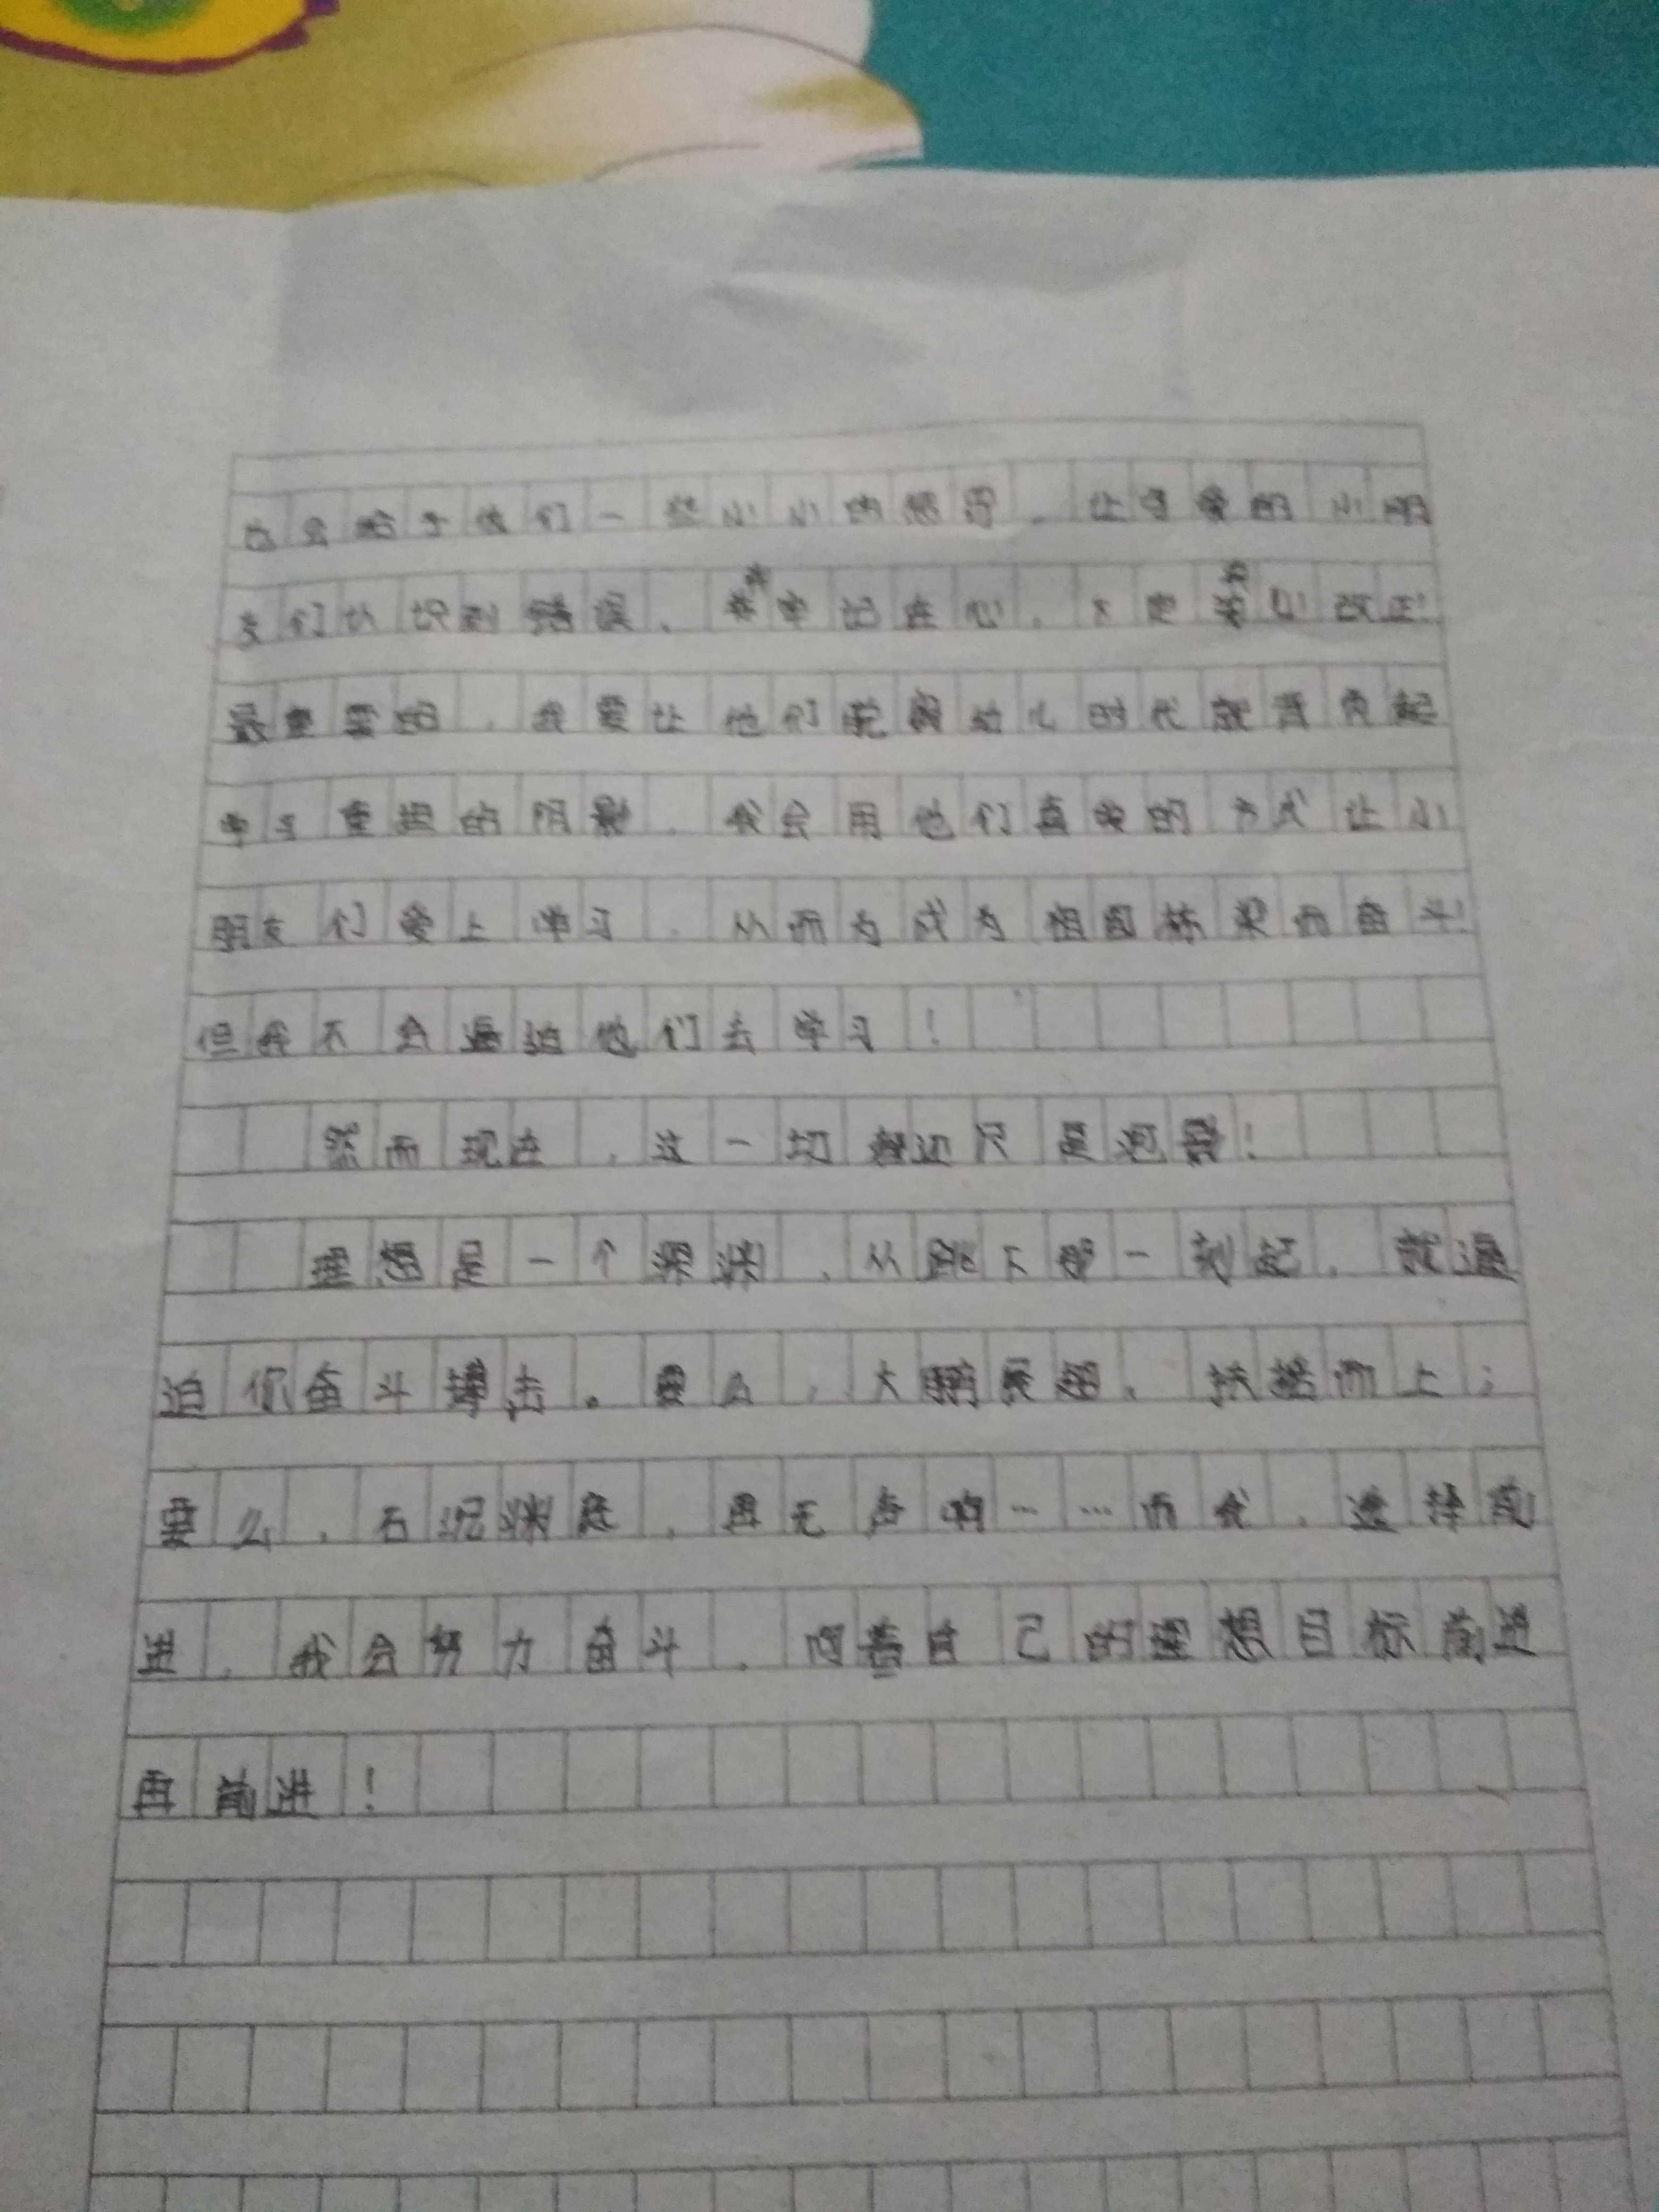 也会给予他们一些小小的惩罚，让可爱的小朋
友们认识到错误，并牢记在心，下定决心改正！
最重要的，我要让他们脱离幼儿时代就背负起
学习重担的阴影，我会用他们喜爱的方式让小
朋友们爱上学习，从而为成为祖国栋梁而奋斗！
但我不会逼迫他们去学习！
然而现在，这一切都还只是泡影！
理想是一个深渊，从跳下那一刻起，就逼
迫你奋斗搏击。要么，大鹏展翅，扶摇而上；
要么，石沉渊底，再无声响……而我，选择前
进，我会努力奋斗，向着自己的理想目标前进
再前进！